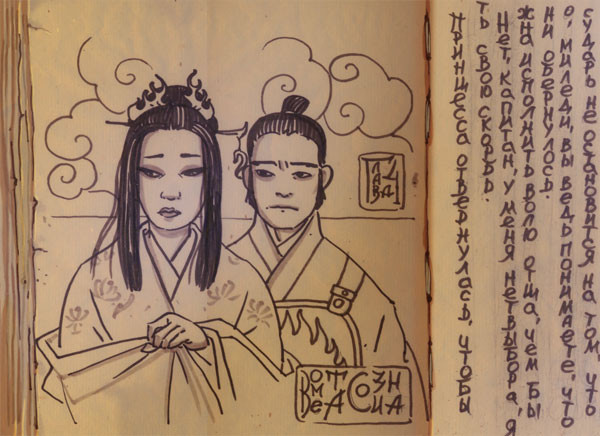 Принцесса отвернулась, чтобы
ть свою скорбь.
Нет, капитан, у меня нет выбора, я
жна исполнить волю отца, чем бы
ни обернулось.
о, миледи, вы ведь понимаете, что
сударь не остановится на том, что